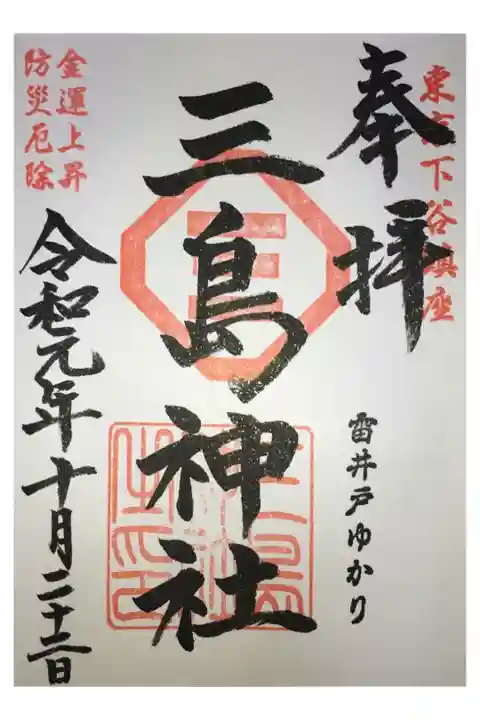 奉拝
東京下谷鎮座
雷井戸ゆかり
三島神社
金運上昇
防災厄除
令和元年十月二十二日